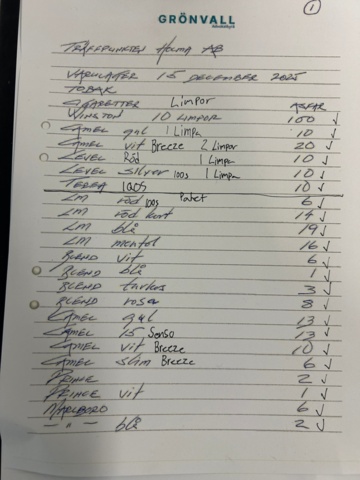 1
GRÖNVALL
TRÄFFPUNKTEN HOLMA AB
VARULAGER 15 DECEMBER 2025
TOBAK
CIGARETTER Limpor ASKAR
WINSTON 10 LIMPOR 100 ✓
CAMEL gul 1 Limpa 10 ✓
CAMEL vit Breeze 2 Limpor 20 ✓
LEVEL Röd 1 Limpa 10 ✓
LEVEL Silver 100s 1 Limpa 10 ✓
TEREA IQOS 10 ✓
LM röd 100s Paket 6 ✓
LM röd kort 14 ✓
LM blå 19 ✓
LM mentol 16 ✓
BLEND vit 6 ✓
BLEND blå 1 ✓
BLEND turkos 3 ✓
BLEND rosa 8 ✓
CAMEL gul 13 ✓
CAMEL 15 Senso 13 ✓
CAMEL vit Breeze 10 ✓
CAMEL slim Breeze 6 ✓
PRINCE 2 ✓
PRINCE vit 1 ✓
MARLBORO 6 ✓
-"- blå 2 ✓